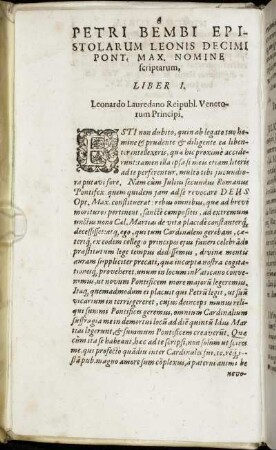 PETRI BEMBI EPI-
STOLARUM LEONIS DECIMI
PONT. MAX. NOMINE
scriptarum,
LIBER I,
Leonardo Lauredano Reipubl. Veneto-
rum Principi,
ETSI non dubito, quin ab legato tuo ho-
mine & prudente & diligente ea liben-
ter intellexeris, quæ hic proxime accide-
runt: tamen illa ipsa si meis etiam literis
ad te perscriberentur, multo tibi jucundio-
ra putavi fore, Nam cùm Julius secundus Romanus
Pontifex quem quidem jam ad se revocare DEUS
Opt, Max. constituerat: rebus omnibus, quæ ad brevi
morituros pertinent, sanctè compositis, ad extremum
nullius nona Cal. Martias de vita placidè constanterq́;
decessisset: atq́, ego, qui tum Cardinalem gerebam, ca-
terìq́, ex eodem collegio principes ejus funeri celebrādo
præstitutum lege tempus dedissemus, divinæ mentis
curam suppliciter precati, quæ incepta nostra cogita-
tionesq́, proveheret. unum in locum in Vaticano conve-
nimus, ut novum Pontificem more majorū legeremus,
Itaq́, quemadmodum ei placuit qui Petrū legit, ut suū
vicarium in terris gereret, cujus deinceps munus reli-
qui summi Pontifices geremus, omnium Cardinalium
suffragia me in demortui locū ad diē quintū Idus Mar-
tias legerunt, & summum Pontificem creaverūt, Quæ
cum ita se habeant, hæc ad te scripsi, non solum ut scires
me. qui profectò quādiu inter Cardinales fui, te, reīq́,
pub. magno amore sum cōplexus, à paterni animi be
nevo-